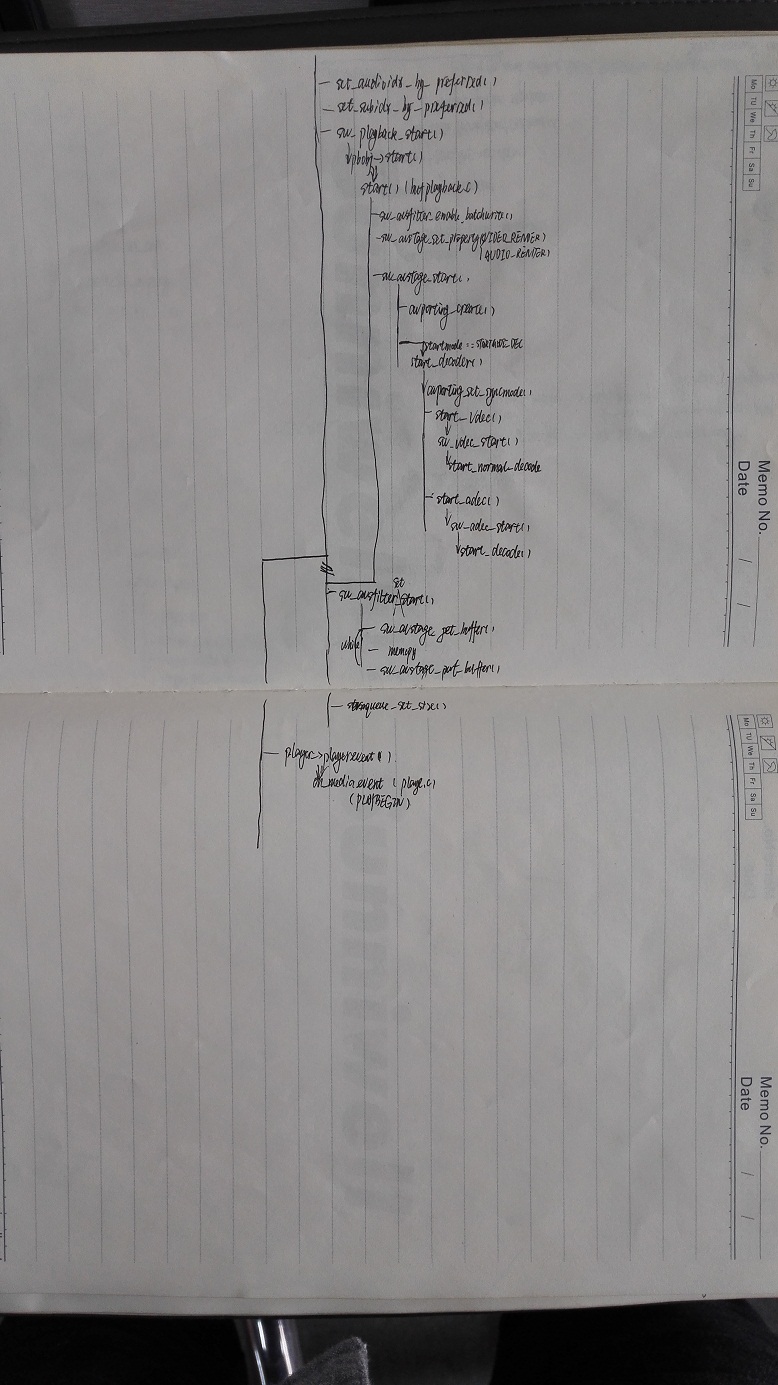 set_audioidx_by_preferred()
set_subidx_by_preferred()
sw_playback_start()
pbobj->start()
start() (hofplayback.c)
sw_avsfilter_enable_batchwrite()
sw_avstage_set_property(VIDER_RENTER)
(AUDIO_RENTER)
sw_avstage_start()
avporting_create()
startmode ==
start_decoder()
avporting_set_syncmode()
start_vdec()
sw_vdec_start()
start_normal_decode
start_adec()
sw_adec_start()
start_decode()
set
sw_avsfilter_start()
while
sw_avstage_get_buffer()
memcpy
sw_avstage_put_buffer()
_set_size()
player->playerevent()
on_media_event (player.c)
(PLAYBEGIN)
Mo Tu We Th Fr Sa Su
Memo No.
Date / /
Mo Tu We Th Fr Sa Su
Memo No.
Date / /